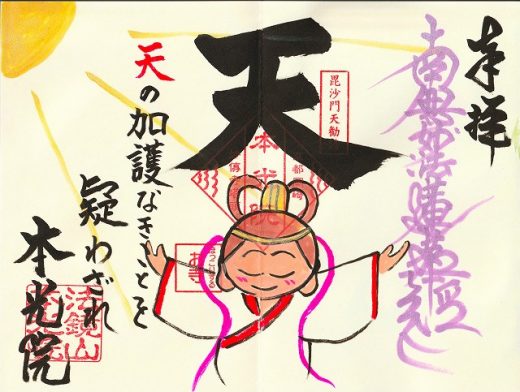 奉拝
南無妙法蓮華経
毘沙門天勧
天
天の加護なきことを
疑わざれ
本光院
法鏡山
お寺